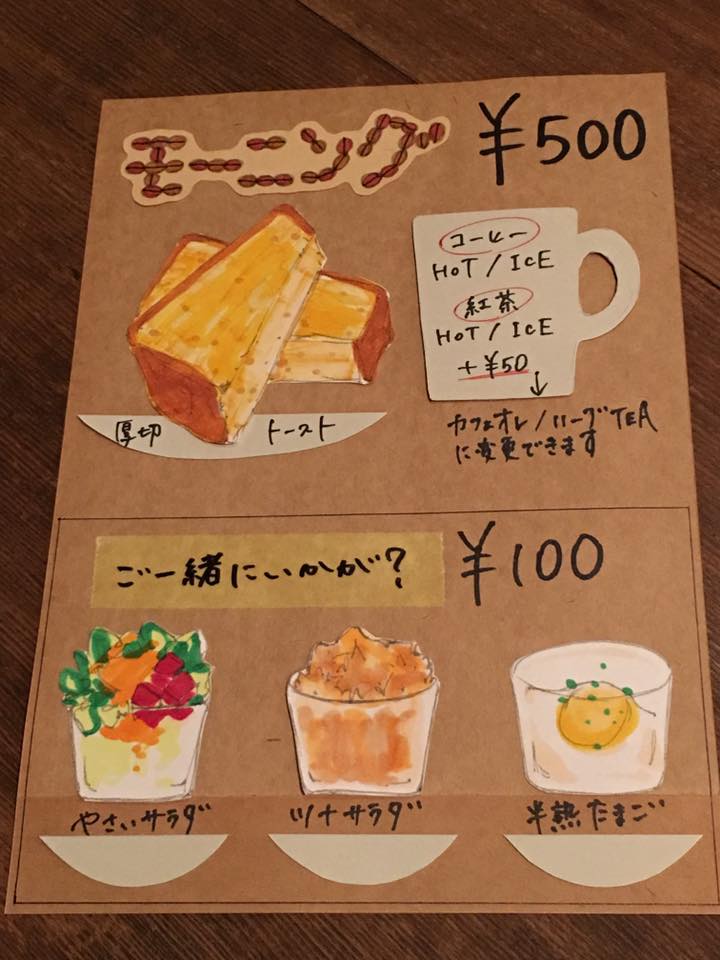 モーニング ¥500
コーヒー
HOT / ICE
紅茶
HOT / ICE
+¥50
↓
カフェオレ / ハーブTEA
に変更できます
厚切 トースト
ご一緒にいかが? ¥100
やさいサラダ ツナサラダ 半熟たまご